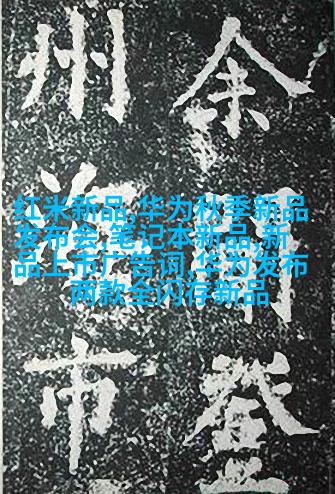 余
登
州
市
红米新品,华为秋季新品
发布会,笔记本新品,新
品上市广告词,华为发布
两款全闪存新品